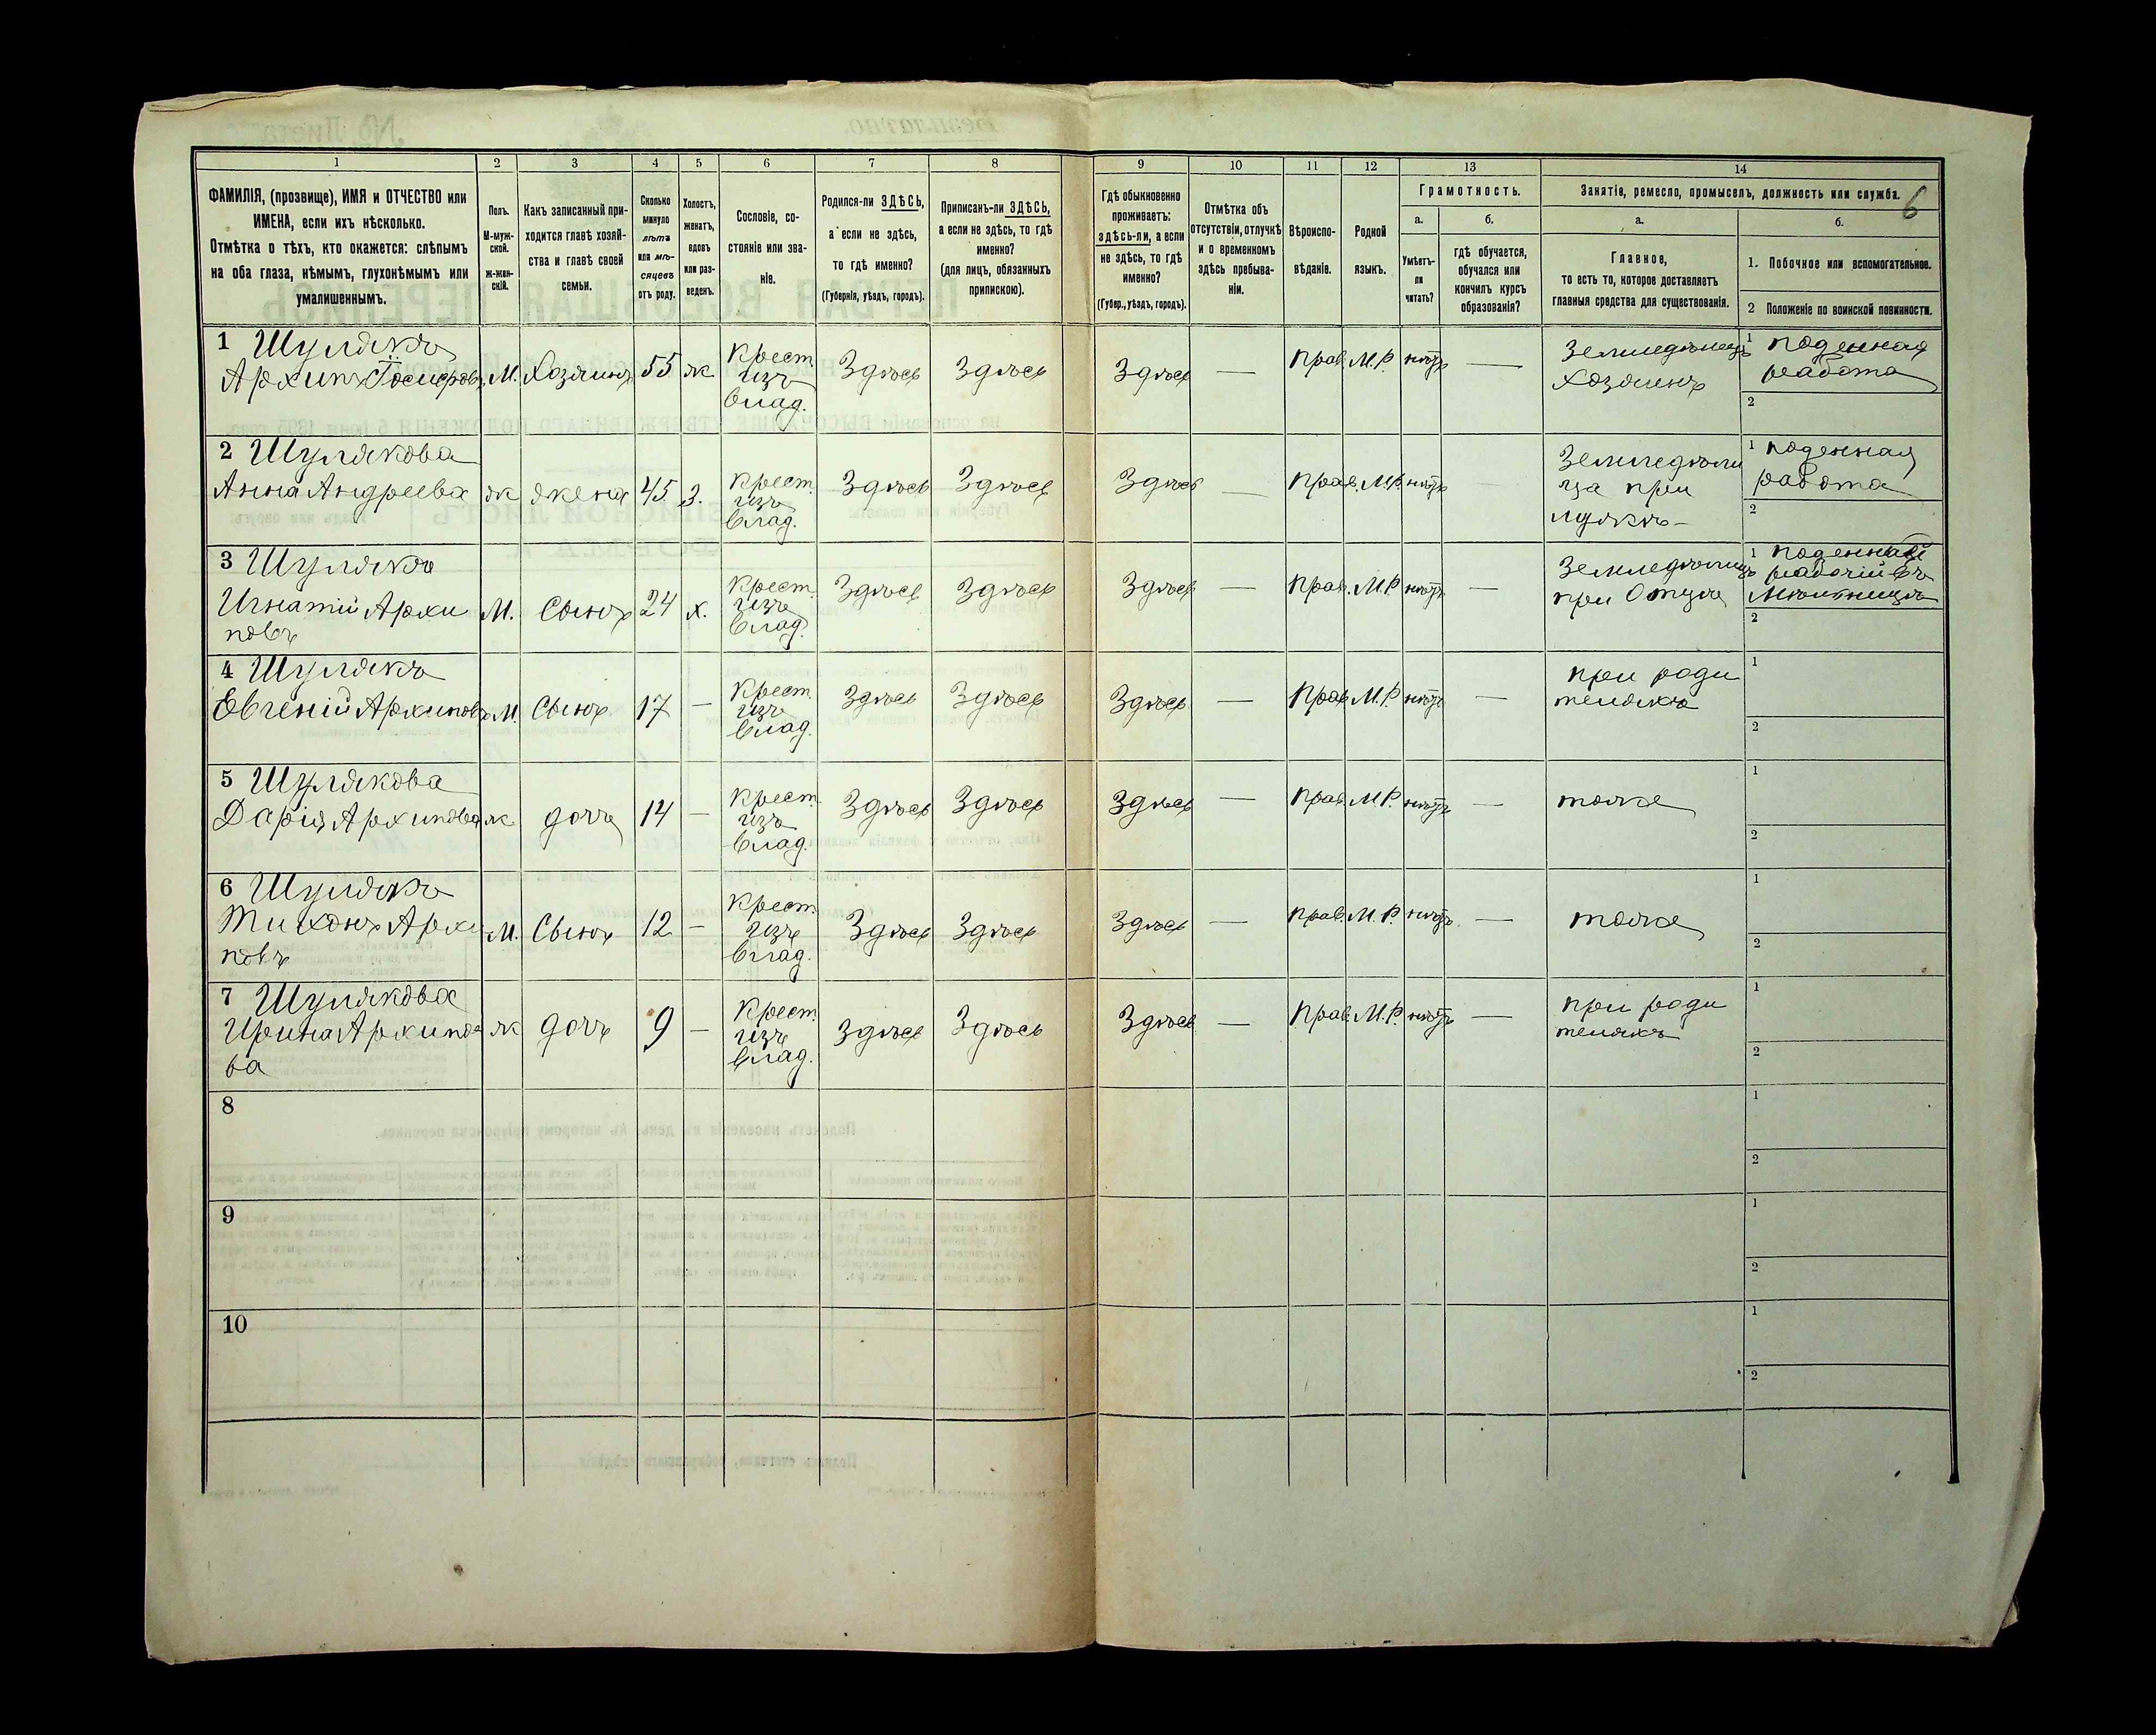 6
1 2 3 4 5 6 7 8 9 10 11 12 13 14
ФАМИЛІЯ, (прозвище), ИМЯ и ОТЧЕСТВО или
ИМЕНА, если ихъ нѣсколько.
Отмѣтка о тѣхъ, кто окажется: слѣпымъ
на оба глаза, нѣмымъ, глухонѣмымъ или
умалишеннымъ.
Полъ.
М-муж-
ской.
ж-жен-
скій.
Какъ записанный при-
ходится главѣ хозяй-
ства и главѣ своей
семьи.
Сколько
минуло
лѣтъ
или мѣ-
сяцевъ
отъ роду.
Холостъ,
женатъ,
вдовъ
или раз-
веденъ.
Сословіе, со-
стояніе или зва-
ніе.
Родился-ли ЗДѢСЬ,
а если не здѣсь,
то гдѣ именно?
(Губернія, уѣздъ, городъ).
Приписанъ-ли ЗДѢСЬ,
а если не здѣсь, то гдѣ
именно?
(для лицъ, обязанныхъ
припискою).
Гдѣ обыкновенно
проживаетъ:
здѣсь-ли, а если
не здѣсь, то гдѣ
именно?
(Губер., уѣздъ, городъ).
Отмѣтка объ
отсутствіи, отлучкѣ
и о временномъ
здѣсь пребыва-
ніи.
Вѣроиспо-
вѣданіе.
Родной
языкъ.
Грамотность.
а.
Умѣетъ-
ли
читать?
б.
гдѣ обучается,
обучался или
кончилъ курсъ
образованія?
Занятіе, ремесло, промыселъ, должность или служба.
а.
Главное,
то есть то, которое доставляетъ
главныя средства для существованія.
б.
1. Побочное или вспомогательное.
2 Положеніе по воинской повинности.
1 Шулякъ
Архипъ М. Хозяинъ 55 ж
Крест.
изъ
влад.
Здѣсь Здѣсь Здѣсь — Прав. М.Р. нѣтъ —
Земледѣлецъ
хозяинъ
1 поденная
работа
2
2 Шулякова
Анна Андреева ж жена 45 з.
Крест.
изъ
влад.
Здѣсь Здѣсь Здѣсь — Прав. М.Р. нѣтъ
Земледѣли
ца при
мужѣ —
1 поденная
работа
2
3 Шулякъ
Игнатій Архи
повъ
М. Сынъ 24 х.
Крест.
изъ
влад.
Здѣсь Здѣсь Здѣсь — Прав. М.Р. нѣтъ —
Земледѣлецъ
при Отцѣ
1
рабочій
2
4 Шулякъ
Евгеній Архиповъ М. Сынъ 17 —
Крест.
изъ
влад.
Здѣсь Здѣсь Здѣсь — Прав. М.Р. нѣтъ —
при роди
теляхъ
1
2
5 Шулякова
Дарія Архипова ж дочь 14 —
Крест.
изъ
влад.
Здѣсь Здѣсь Здѣсь — Прав. М.Р. нѣтъ —
тоже
1
2
6 Шулякъ
Тихонъ Архи
повъ
М. Сынъ 12 —
Крест.
изъ
влад.
Здѣсь Здѣсь Здѣсь — Прав. М.Р. нѣтъ —
тоже
1
2
7 Шулякова
Ирина Архипо
ва
ж дочь 9 —
Крест.
изъ
влад.
Здѣсь Здѣсь Здѣсь — Прав. М.Р. нѣтъ —
при роди
теляхъ
1
2
8
1
2
9
1
2
10
1
2